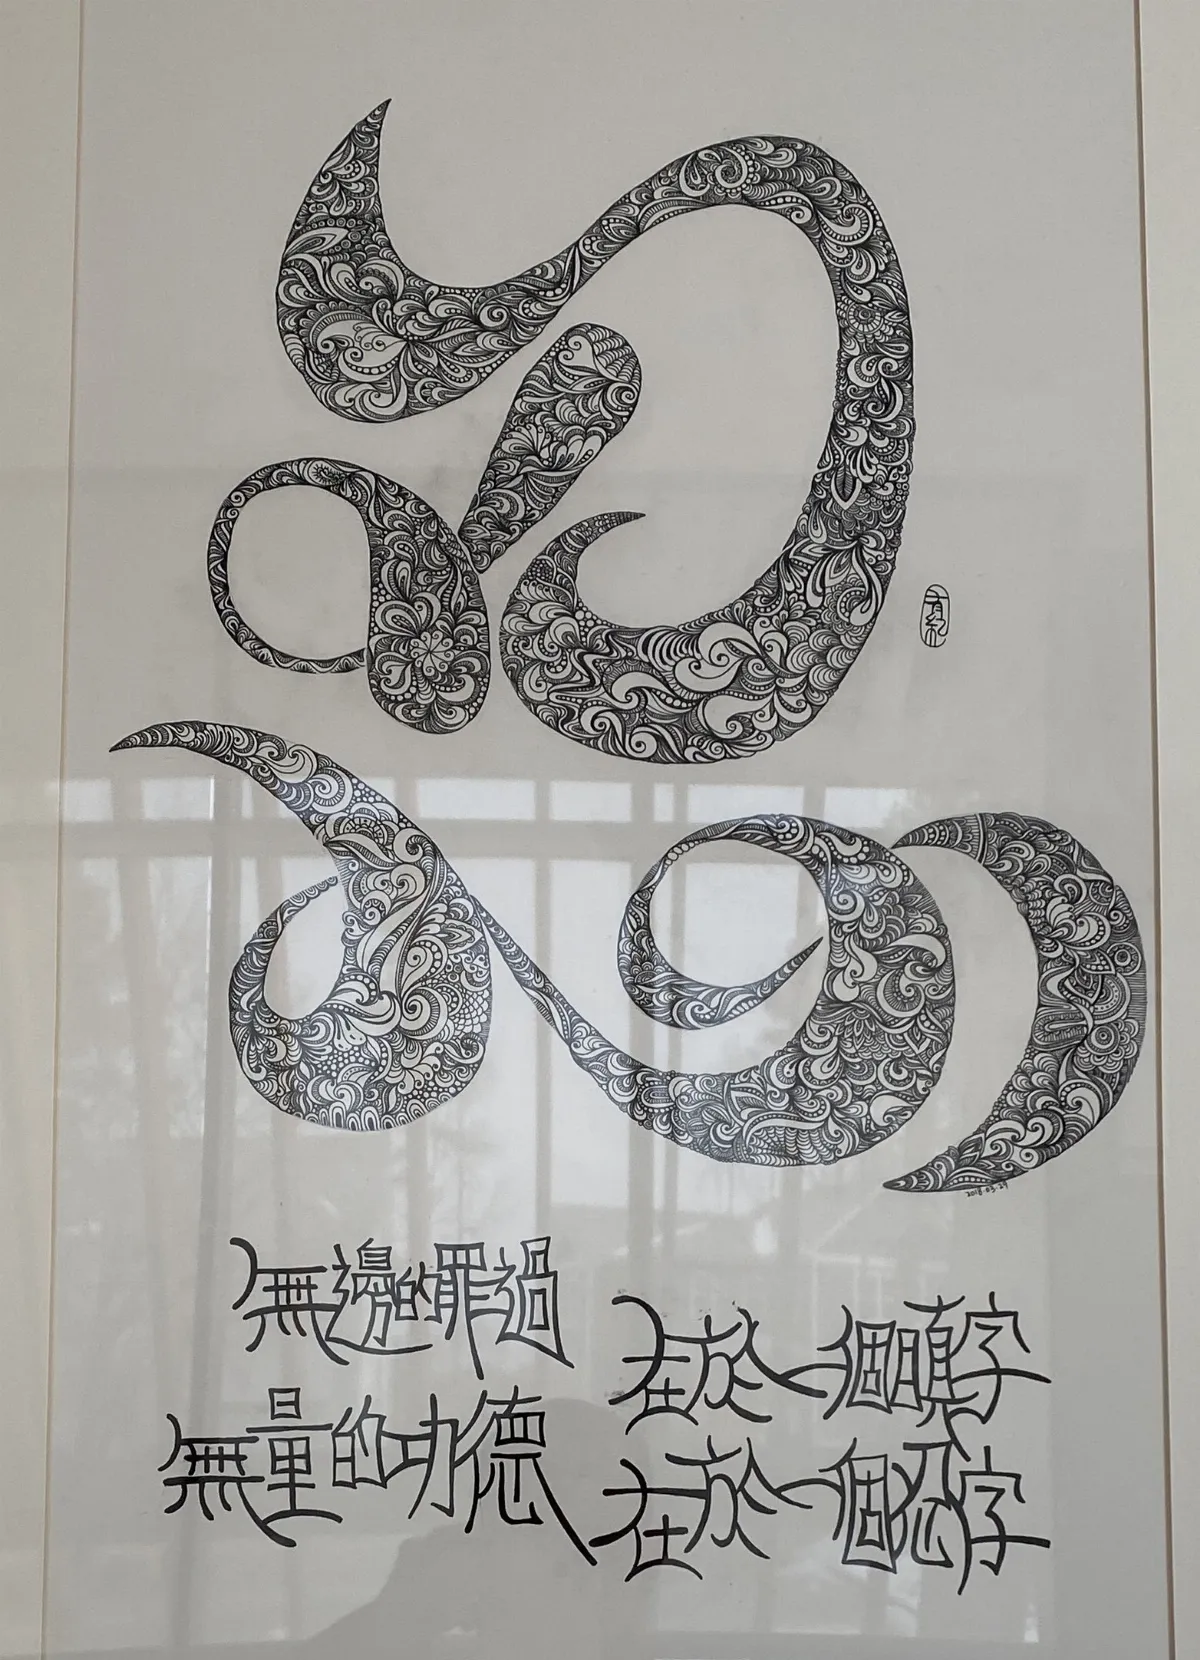 忍
2018.03.29
無邊的罪過
在於一個瞋字
無量的功德
在於一個忍字